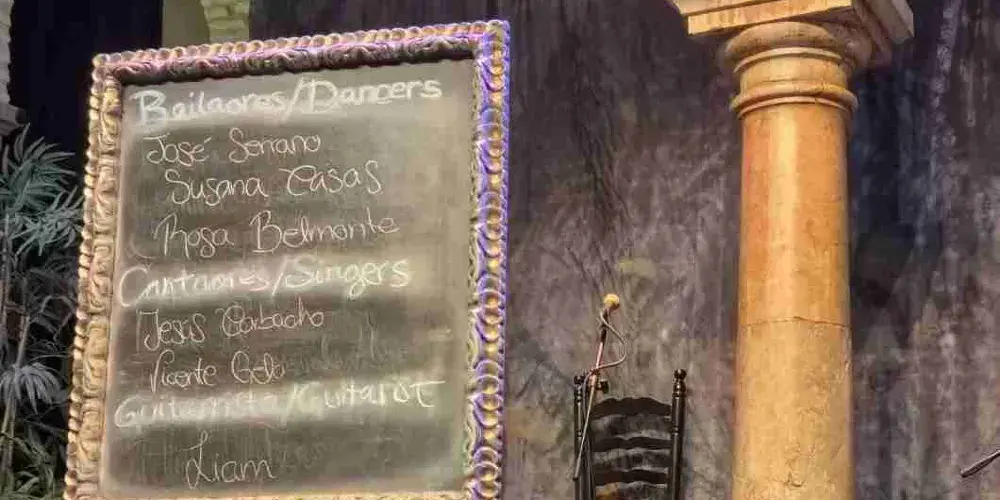 Bailaores/Dancers
José Serrano
Susana Casas
Rosa Belmonte
Cantaores/Singers
Jesús Corbacho
Vicente Gelo
Guitarrista/Guitarist
Liam